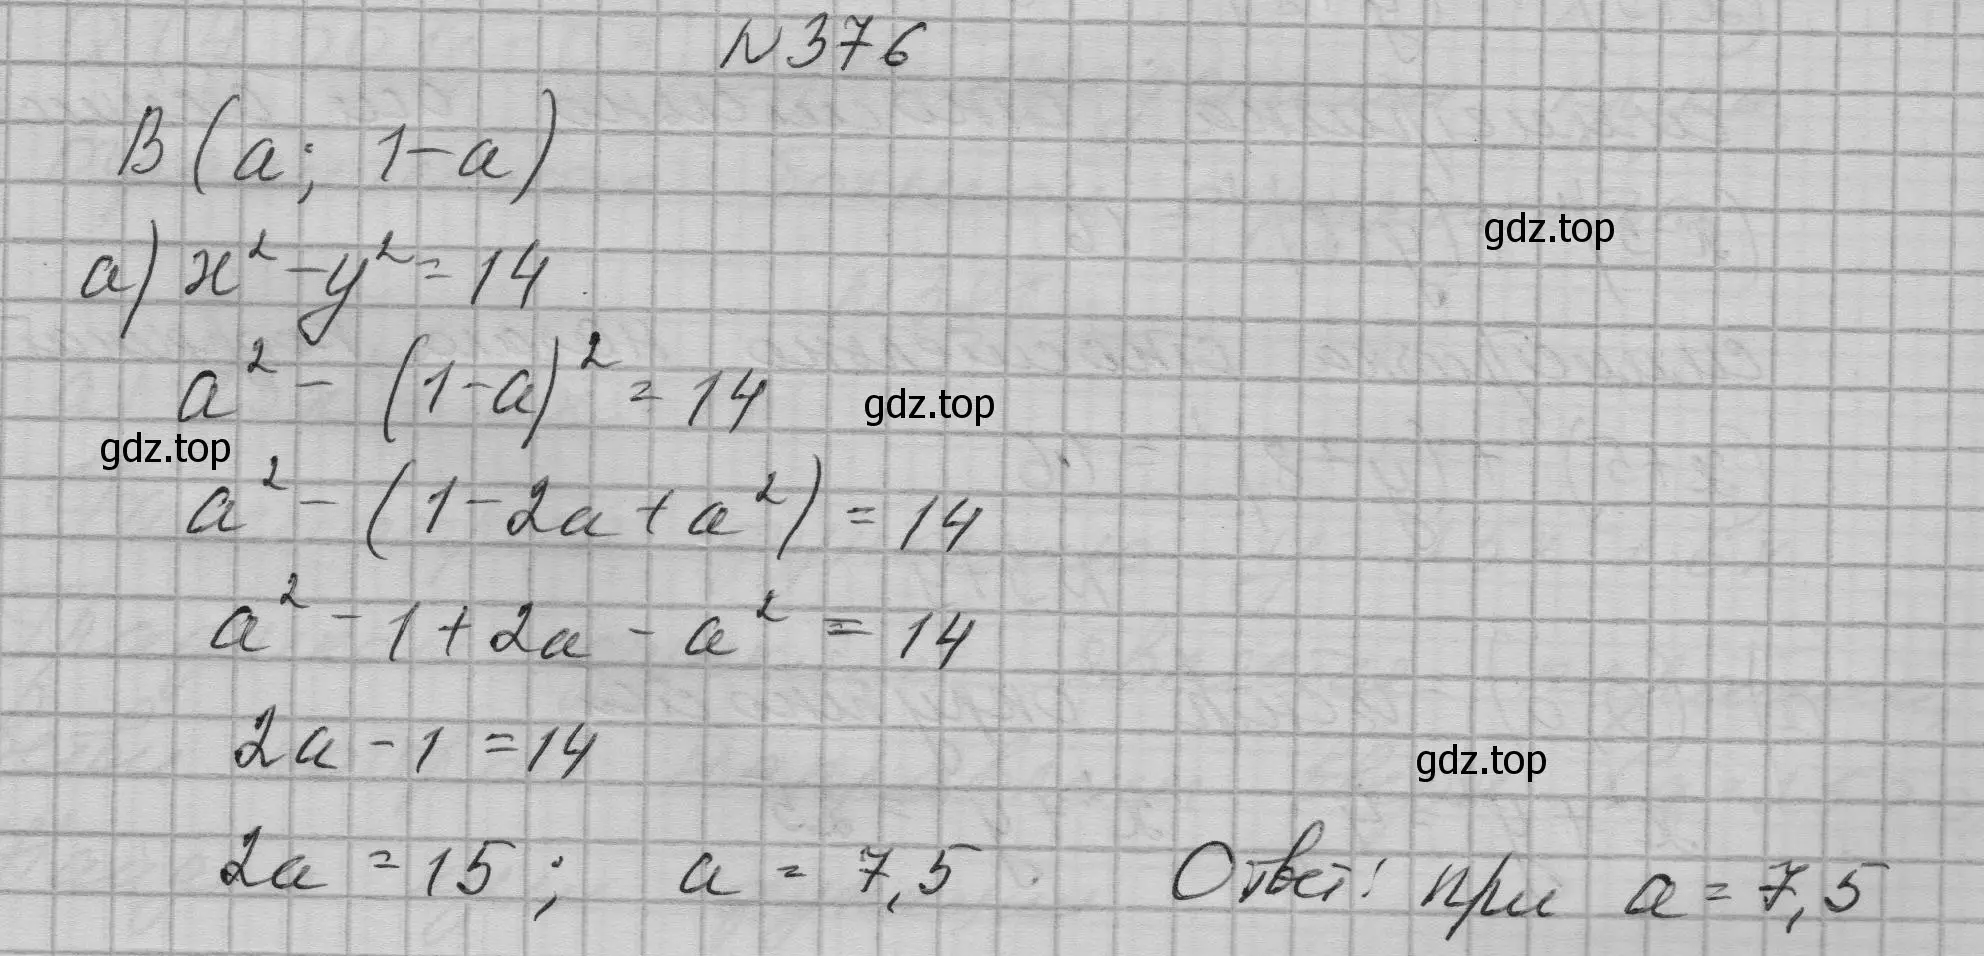 N376
B(a; 1-a)
a) x² - y² = 14
gdz.top
a² - (1-a)² = 14
gdz.top
gdz.top
a² - (1-2a+a²) = 14
a² - 1 + 2a - a² = 14
2a - 1 = 14
gdz.top
2a = 15; a = 7,5 Ответ: при a = 7,5